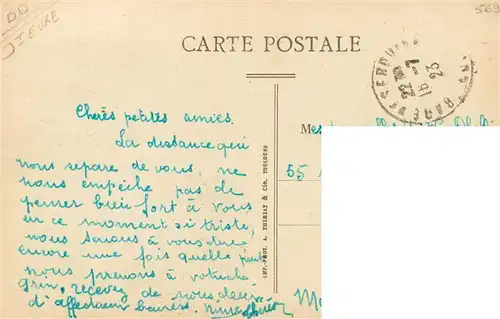 DD
EURE
569
CARTE POSTALE
GARE DE
22
7 - 1
16 23
Chères petites amies.
La distance qui
nous separe de vous, ne
nous empêche pas de
penser bien fort à vous
en ce moment si triste,
nous tenons à vous dire
encore une fois quelle part
nous prenons à votre cha
grin, recevez de nous deux
d'affectueux baisers.
Mes
55
IMP.-PHOT. A. THIRIAT & Cie, TOULOUSE